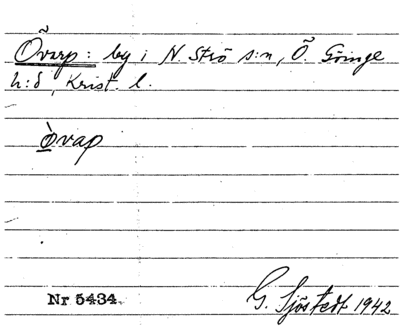 Övarp: by i N. Strö s:n, Ö. Göinge
h:d, Krist. l.
òvap
Nr 5434.
G. Sjöstedt 1942